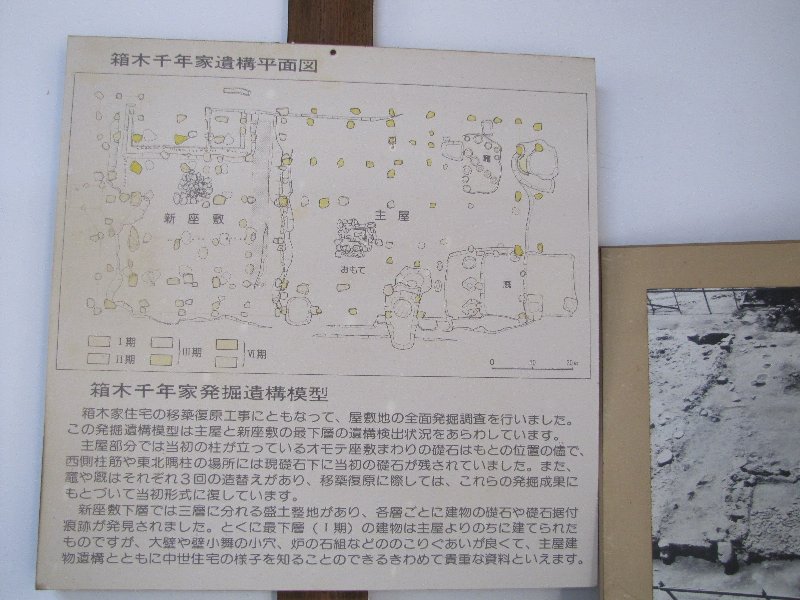 箱木千年家遺構平面図
新座敷
主屋
竈
おもて
厩
Ⅰ期
Ⅱ期
Ⅲ期
Ⅵ期
0 10 20尺
箱木千年家発掘遺構模型
箱木家住宅の移築復原工事にともなって、屋敷地の全面発掘調査を行いました。
この発掘遺構模型は主屋と新座敷の最下層の遺構検出状況をあらわしています。
主屋部分では当初の柱が立っているオモテ座敷まわりの礎石はもとの位置の儘で、
西側柱筋や東北隅柱の場所には現礎石下に当初の礎石が残されていました。また、
竈や厩はそれぞれ3回の造替えがあり、移築復原に際しては、これらの発掘成果に
もとづいて当初形式に復しています。
新座敷下層では三層に分れる盛土整地があり、各層ごとに建物の礎石や礎石据付
痕跡が発見されました。とくに最下層(Ⅰ期)の建物は主屋よりのちに建てられた
ものですが、大壁や壁小舞の小穴、炉の石組などののこりぐあいが良くて、主屋建
物遺構とともに中世住宅の様子を知ることのできるきわめて貴重な資料といえます。